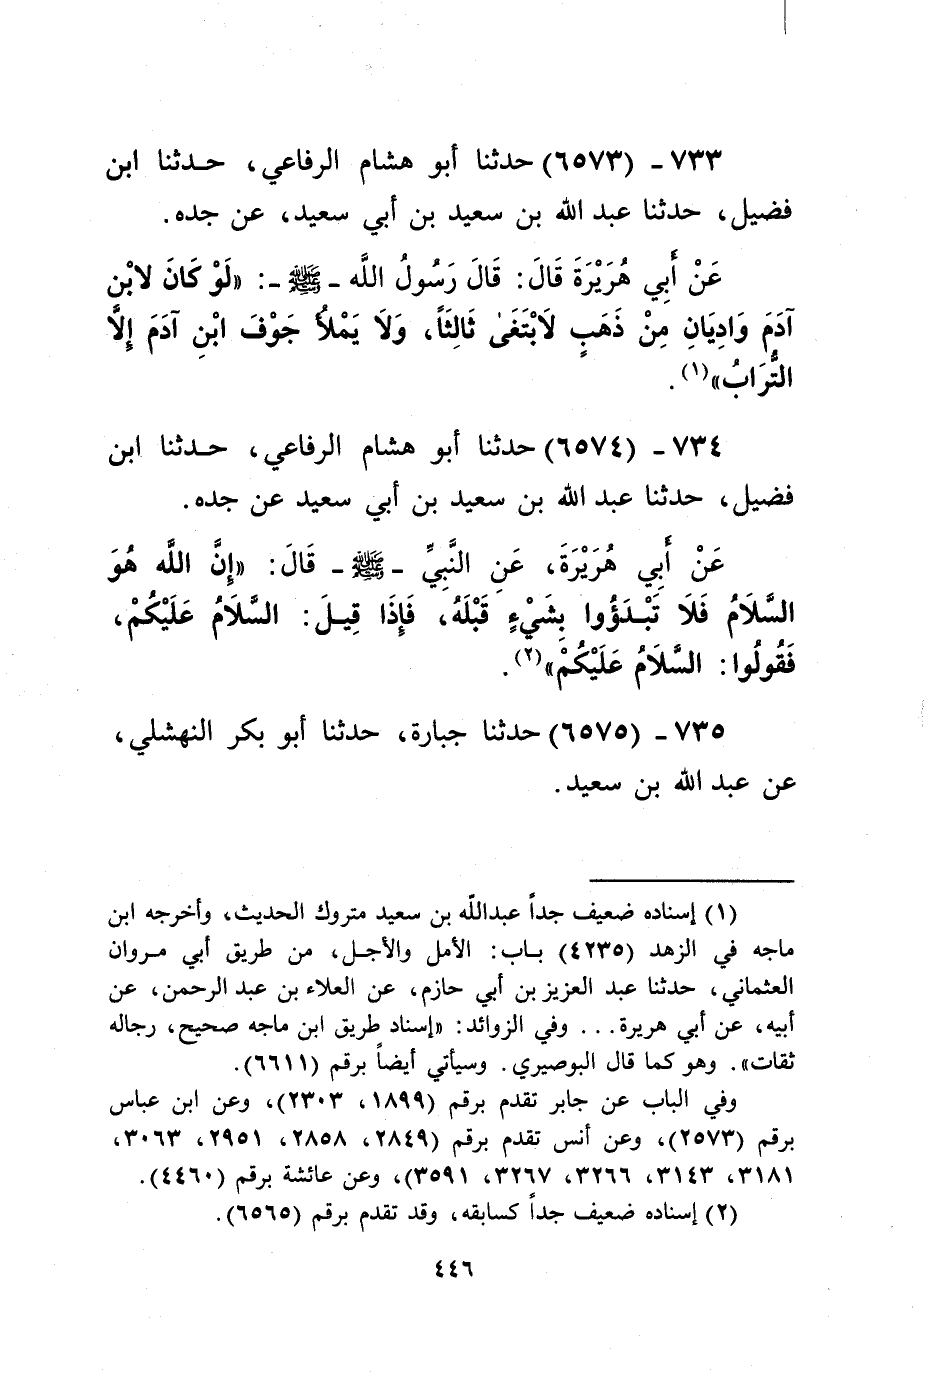 ٧٣٣ - (٦٥٧٣) حدثنا أبو هشام الرفاعي، حـدثنا ابن
فضيل، حدثنا عبد الله بن سعيد بن أبي سعيد، عن جده.
عَنْ أَبِي هُرَيْرَةَ قَالَ: قَالَ رَسُولُ اللَّه - ﷺ -: «لَوْ كَانَ لابْنِ
آدَمَ وَادِيَانِ مِنْ ذَهَبٍ لَابْتَغَىٰ ثَالِثَاً، وَلَا يَمْلأُ جَوْفَ ابْنِ آدَمَ إِلَّا
التُّرَابُ»(١).
٧٣٤ - (٦٥٧٤) حدثنا أبو هشام الرفاعي، حـدثنا ابن
فضيل، حدثنا عبد الله بن سعيد بن أبي سعيد عن جده.
عَنْ أَبِي هُرَيْرَةَ، عَنِ النَّبِيِّ - ﷺ - قَالَ: «إِنَّ اللَّه هُوَ
السَّلَامُ فَلَا تَبْـدَؤُوا بِشَيْءٍ قَبْلَهُ، فَإِذَا قِيـلَ: السَّلَامُ عَلَيْكُمْ،
فَقُولُوا: السَّلَامُ عَلَيْكُمْ»(٢).
٧٣٥ - (٦٥٧٥) حدثنا جبارة، حدثنا أبو بكر النهشلي،
عن عبد الله بن سعيد.
(١) إسناده ضعيف جداً عبدالله بن سعيد متروك الحديث، وأخرجه ابن
ماجه في الزهد (٤٢٣٥) بـاب: الأمل والأجـل، من طريق أبي مـروان
العثماني، حدثنا عبد العزيز بن أبي حازم، عن العلاء بن عبد الرحمن، عن
أبيه، عن أبي هريرة... وفي الزوائد: «إسناد طريق ابن ماجه صحيح، رجاله
ثقات». وهو كما قال البوصيري. وسيأتي أيضاً برقم (٦٦١١).
وفي الباب عن جابر تقدم برقم (١٨٩٩، ٢٣٠٣)، وعن ابن عباس
برقم (٢٥٧٣)، وعن أنس تقدم برقم (٢٨٤٩، ٢٨٥٨، ٢٩٥١، ٣٠٦٣،
٣١٨١، ٣١٤٣، ٣٢٦٦، ٣٢٦٧، ٣٥٩١)، وعن عائشة برقم (٤٤٦٠).
(٢) إسناده ضعيف جداً كسابقه، وقد تقدم برقم (٦٥٦٥).
٤٤٦